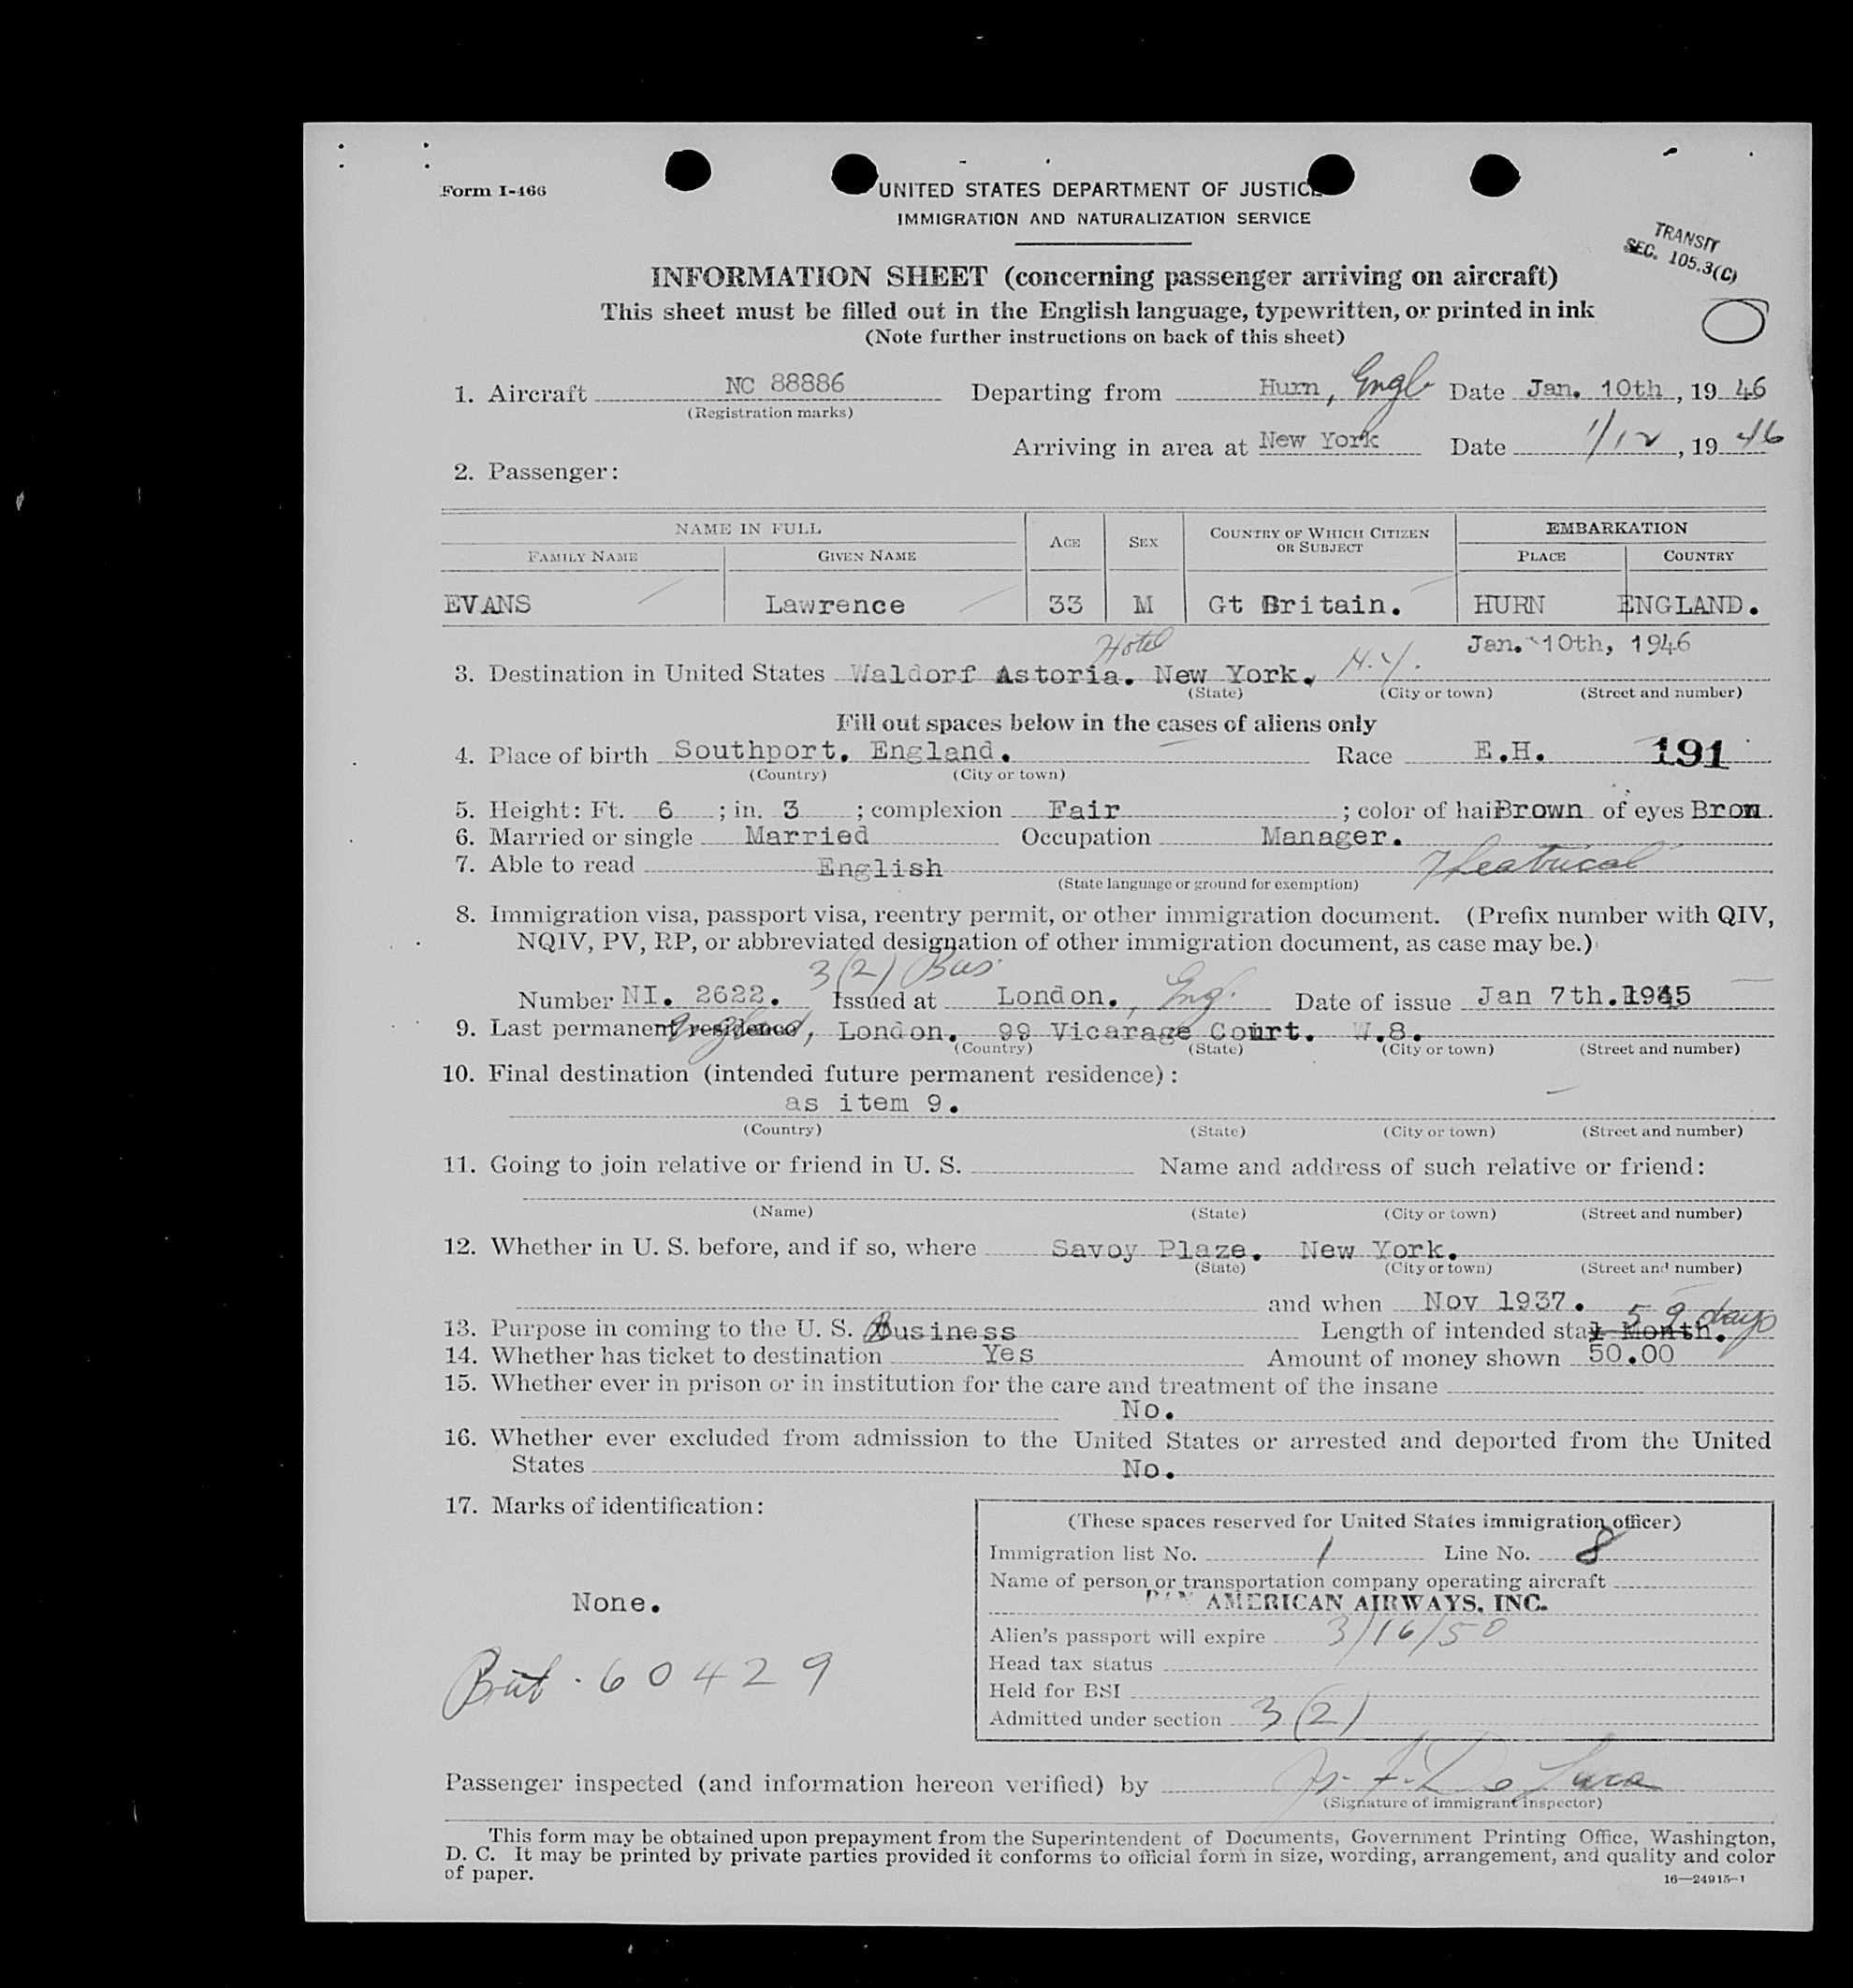 Form I-466
UNITED STATES DEPARTMENT OF JUSTICE
IMMIGRATION AND NATURALIZATION SERVICE
TRANSIT
SEC. 105.3(C)
INFORMATION SHEET (concerning passenger arriving on aircraft)
This sheet must be filled out in the English language, typewritten, or printed in ink
(Note further instructions on back of this sheet)
1. Aircraft NC 88886 Departing from Hurn, Engl Date Jan. 10th, 19 46
(Registration marks)
Arriving in area at New York Date 1/12, 19 46
2. Passenger:
NAME IN FULL AGE SEX COUNTRY OF WHICH CITIZEN OR SUBJECT EMBARKATION
FAMILY NAME GIVEN NAME PLACE COUNTRY
EVANS Lawrence 33 M Gt Britain. HURN ENGLAND.
Hotel Jan. 10th, 1946
3. Destination in United States Waldorf Astoria. New York, N.Y.
(State) (City or town) (Street and number)
Fill out spaces below in the cases of aliens only
4. Place of birth Southport. England. Race E.H. 191
(Country) (City or town)
5. Height: Ft. 6; in. 3; complexion Fair; color of hair Brown of eyes Bron.
6. Married or single Married Occupation Manager.
7. Able to read English Theatrical
(State language or ground for exemption)
8. Immigration visa, passport visa, reentry permit, or other immigration document. (Prefix number with QIV,
NQIV, PV, RP, or abbreviated designation of other immigration document, as case may be.)
3(2) Bus.
Number NI. 2622. Issued at London., Eng. Date of issue Jan 7th. 1945
9. Last permanent residence England, London. 99 Vicarage Court. W.8.
(Country) (State) (City or town) (Street and number)
10. Final destination (intended future permanent residence):
as item 9.
(Country) (State) (City or town) (Street and number)
11. Going to join relative or friend in U. S. Name and address of such relative or friend:
(Name) (State) (City or town) (Street and number)
12. Whether in U. S. before, and if so, where Savoy Plaze. New York.
(State) (City or town) (Street and number)
and when Nov 1937. 59 days
13. Purpose in coming to the U. S. Business Length of intended stay 1 Month.
14. Whether has ticket to destination Yes Amount of money shown 50.00
15. Whether ever in prison or in institution for the care and treatment of the insane
No.
16. Whether ever excluded from admission to the United States or arrested and deported from the United
States No.
17. Marks of identification:
None.
Brit. 60429
(These spaces reserved for United States immigration officer)
Immigration list No. 1 Line No. 8
Name of person or transportation company operating aircraft
PAN AMERICAN AIRWAYS, INC.
Alien's passport will expire 3/16/50
Head tax status
Held for BSI
Admitted under section 3(2)
Passenger inspected (and information hereon verified) by De Luca
(Signature of immigrant inspector)
This form may be obtained upon prepayment from the Superintendent of Documents, Government Printing Office, Washington,
D. C. It may be printed by private parties provided it conforms to official form in size, wording, arrangement, and quality and color
of paper.
16—24915-1